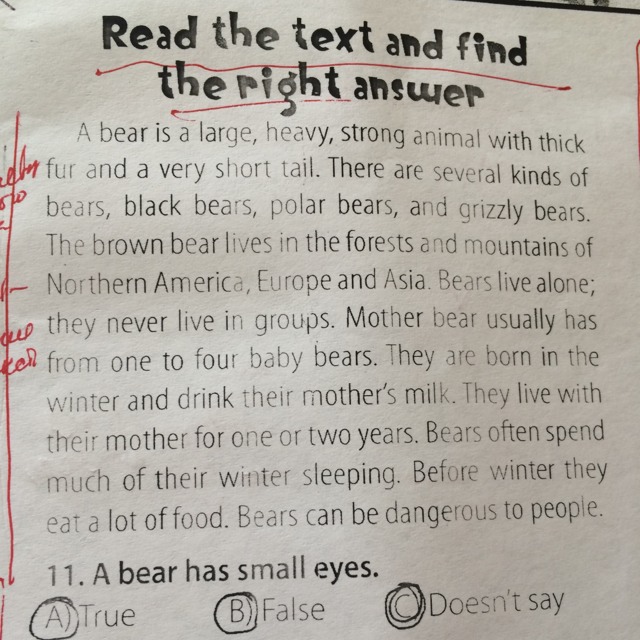 Read the text and find
the right answer
A bear is a large, heavy, strong animal with thick
fur and a very short tail. There are several kinds of
bears, black bears, polar bears, and grizzly bears.
The brown bear lives in the forests and mountains of
Northern America, Europe and Asia. Bears live alone;
they never live in groups. Mother bear usually has
from one to four baby bears. They are born in the
winter and drink their mother's milk. They live with
their mother for one or two years. Bears often spend
much of their winter sleeping. Before winter they
eat a lot of food. Bears can be dangerous to people.
11. A bear has small eyes.
A) True B) False C) Doesn't say